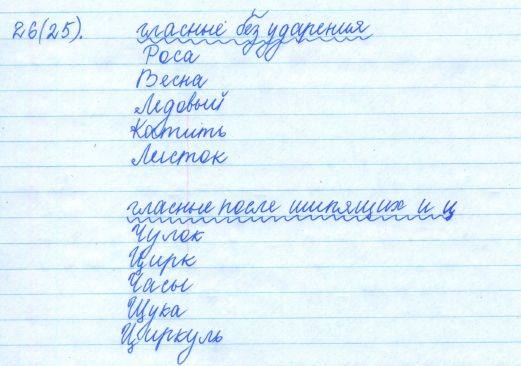 26(25). гласные без ударения
Роса
Весна
Ледовый
Катить
Листок
гласные после шипящих и ц
Чулок
Цирк
Часы
Щука
Циркуль